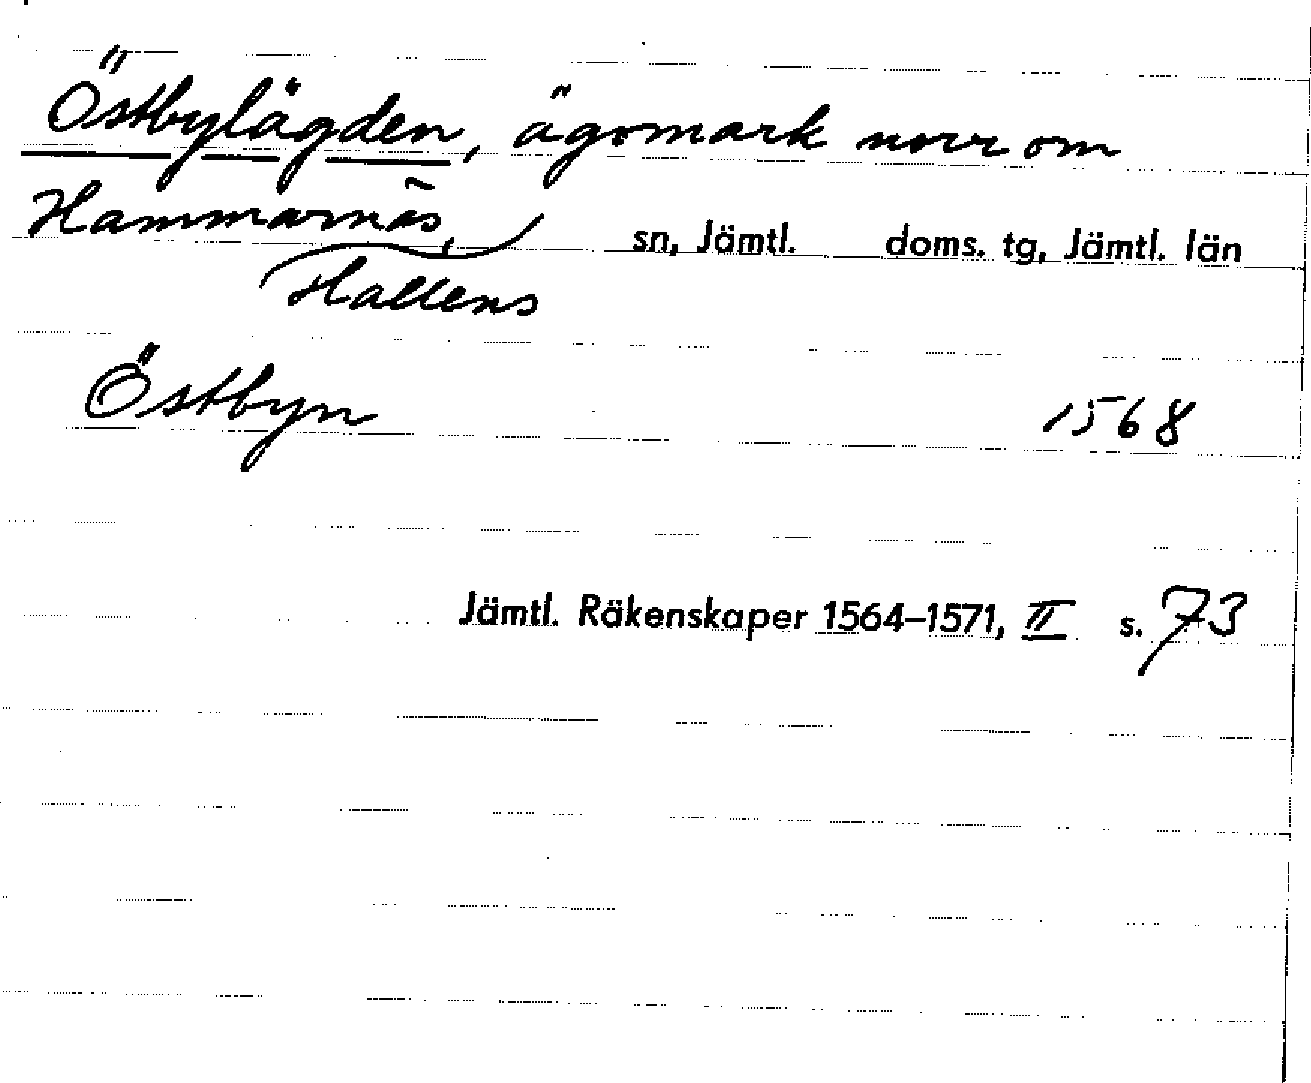 Östbylägden, ägomark norr om
Hammarnäs, sn, Jämtl. doms. tg, Jämtl. län
Hallens
Östbyn 1568
Jämtl. Räkenskaper 1564–1571, II s. 73